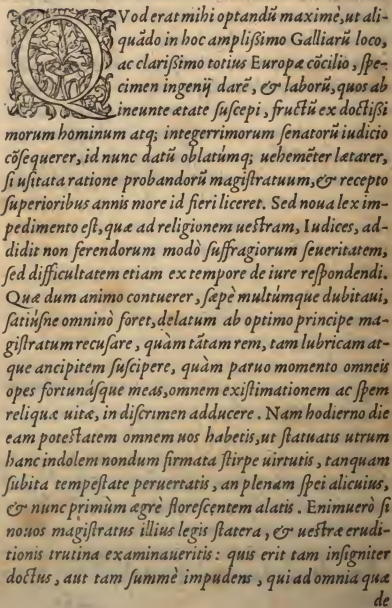 QVod erat mihi optandũ maximè, ut ali-
quãdo in hoc amplißimo Galliarũ loco,
ac clarißimo totius Europæ cõcilio, spe-
cimen ingenij darẽ, & laborũ, quos ab
ineunte ætate suscepi, fructũ ex doctißi
morum hominum atq; integerrimorum senatorũ iudicio
cõsequerer, id nunc datũ oblatumq; uehemẽter lætarer,
si usitata ratione probandorũ magistratuum, & recepto
superioribus annis more id fieri liceret. Sed noua lex im-
pedimento est, quæ ad religionem uestram, Iudices, ad-
didit non ferendorum modò suffragiorum seueritatem,
sed difficultatem etiam ex tempore de iure respondendi.
Quæ dum animo contuerer, sæpè multúmque dubitaui,
satiúsne omninò foret, delatum ab optimo principe ma-
gistratum recusare, quàm tãtam rem, tam lubricam at-
que ancipitem suscipere, quàm paruo momento omneis
opes fortunásque meas, omnem existimationem ac spem
reliquæ uitæ, in discrimen adducere. Nam hodierno die
eam potestatem omnem uos habetis, ut statuatis utrum
hanc indolem nondum firmata stirpe uirtutis, tanquam
subita tempestate peruertatis, an plenam spei alicuius,
& nunc primùm ægrè florescentem alatis. Enimuerò si
nouos magistratus illius legis statera, & uestræ erudi-
tionis trutina examinaueritis: quis erit tam insigniter
doctus, aut tam summè impudens, qui ad omnia quæ
de